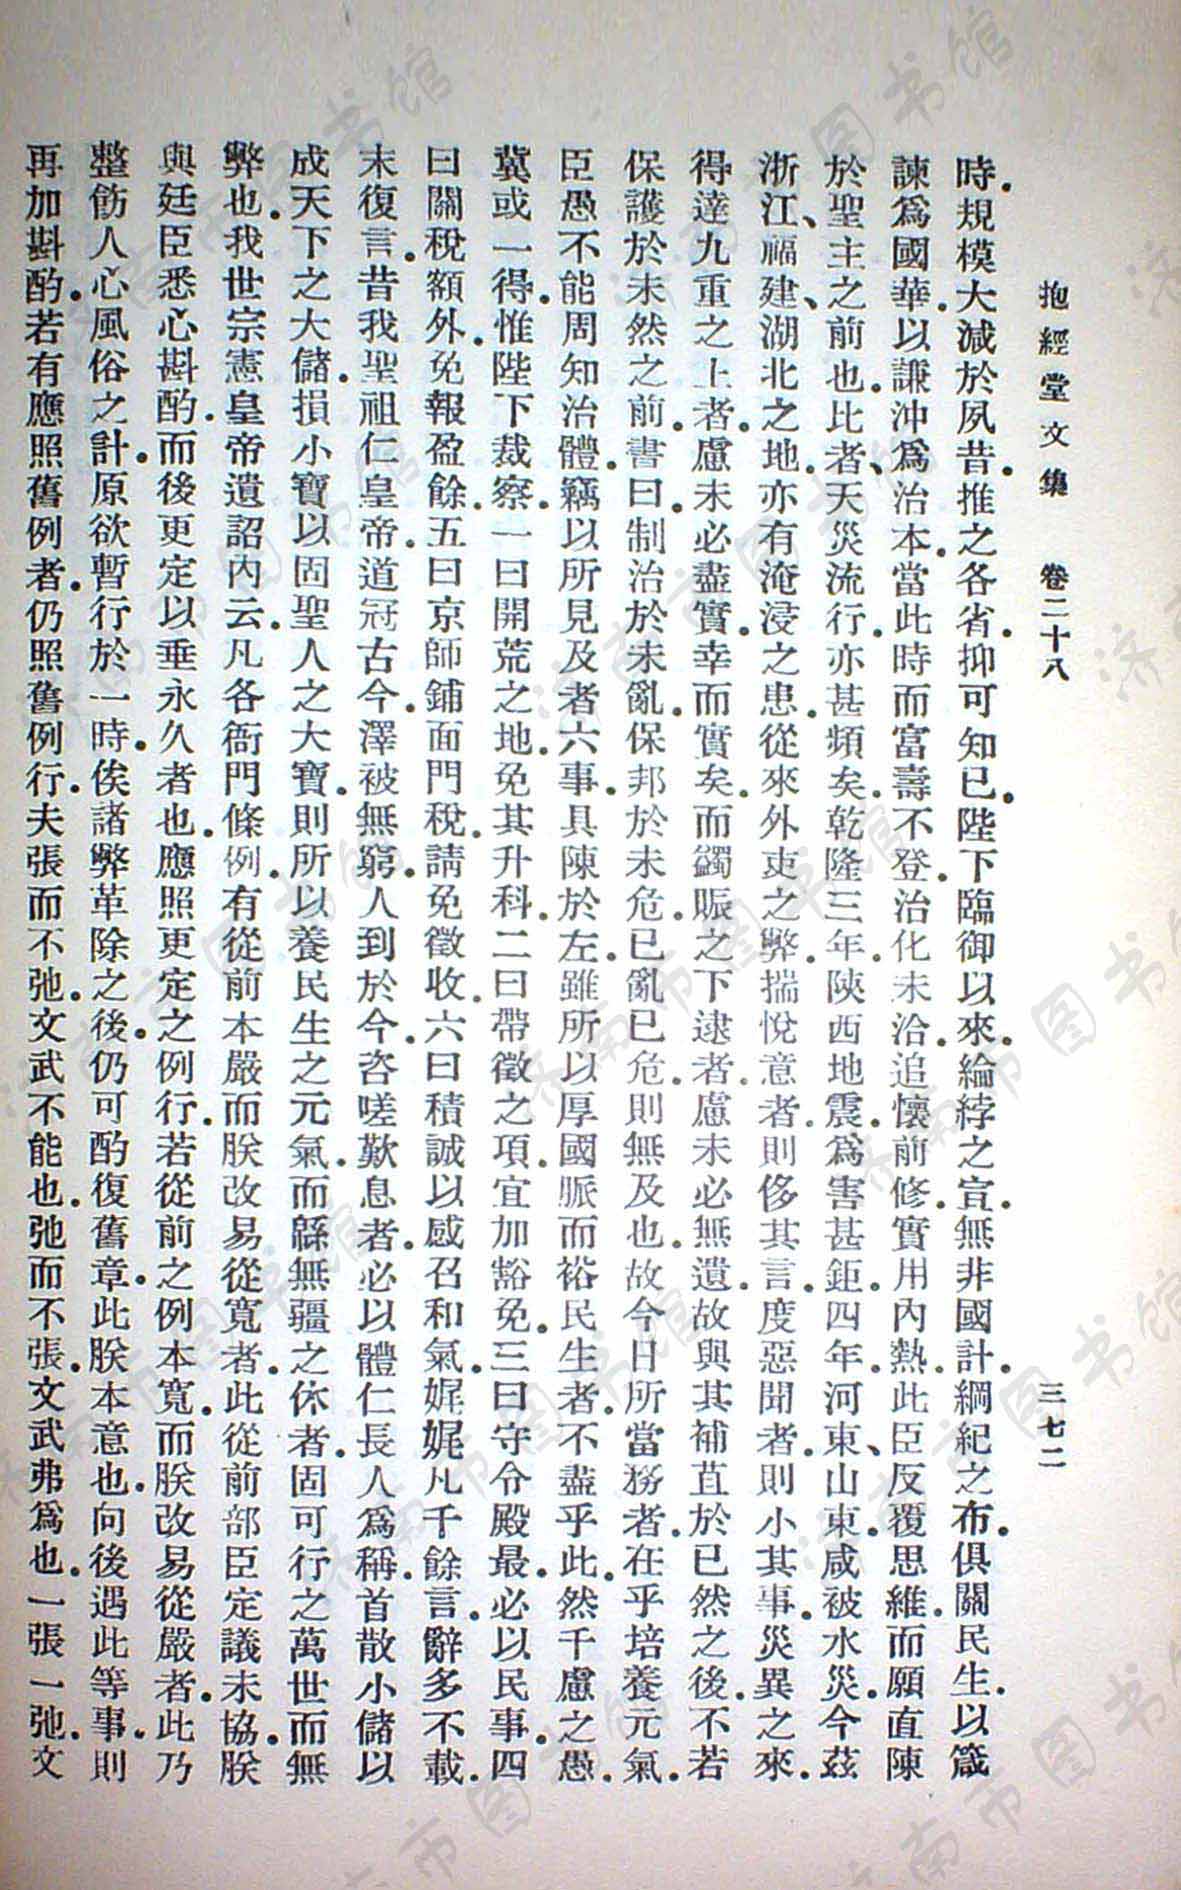 抱經堂文集　卷二十八　三七二
時。規模大減於夙昔。推之各省。抑可知已。陛下臨御以來。綸綍之宣。無非國計。綱紀之布。俱關民生。以箴
諫爲國華。以謙沖爲治本。當此時而富壽不登。治化未洽。追懷前修。實用內熱。此臣反覆思維。而願直陳
於聖主之前也。比者、天災流行。亦甚頻矣。乾隆三年。陝西地震。爲害甚鉅。四年。河東、山東。咸被水災。今茲
浙江、福建、湖北之地。亦有淹浸之患。從來外吏之弊。揣悅意者。則侈其言。度惡聞者。則小其事。災異之來。
得達九重之上者。慮未必盡實。幸而實矣。而蠲賑之下逮者。慮未必無遺。故與其補苴於已然之後。不若
保護於未然之前。書曰。制治於未亂。保邦於未危。已亂已危。則無及也。故今日所當務者。在乎培養元氣。
臣愚不能周知治體。竊以所見及者六事。具陳於左。雖所以厚國脈而裕民生者。不盡乎此。然千慮之愚。
冀或一得。惟陛下裁察。一曰開荒之地。免其升科。二曰帶徵之項。宜加豁免。三曰守令殿最。必以民事。四
曰關稅額外。免報盈餘。五曰京師鋪面門稅。請免徵收。六曰積誠以感召和氣。娓娓凡千餘言。辭多不載。
末復言。昔我聖祖仁皇帝。道冠古今。澤被無窮。人到於今。咨嗟歎息者。必以體仁長人爲稱首。散小儲以
成天下之大儲。損小寶以固聖人之大寶。則所以養民生之元氣。而緜無疆之休者。固可行之萬世而無
弊也。我世宗憲皇帝遺詔內云。凡各衙門條例。有從前本嚴而朕改易從寬者。此從前部臣定議未協。朕
與廷臣悉心斟酌。而後更定以垂永久者也。應照更定之例行。若從前之例本寬。而朕改易從嚴者。此乃
整飭人心風俗之計。原欲暫行於一時。俟諸弊革除之後。仍可酌復舊章。此朕本意也。向後遇此等事。則
再加斟酌。若有應照舊例者。仍照舊例行。夫張而不弛。文武不能也。弛而不張。文武弗爲也。一張一弛。文